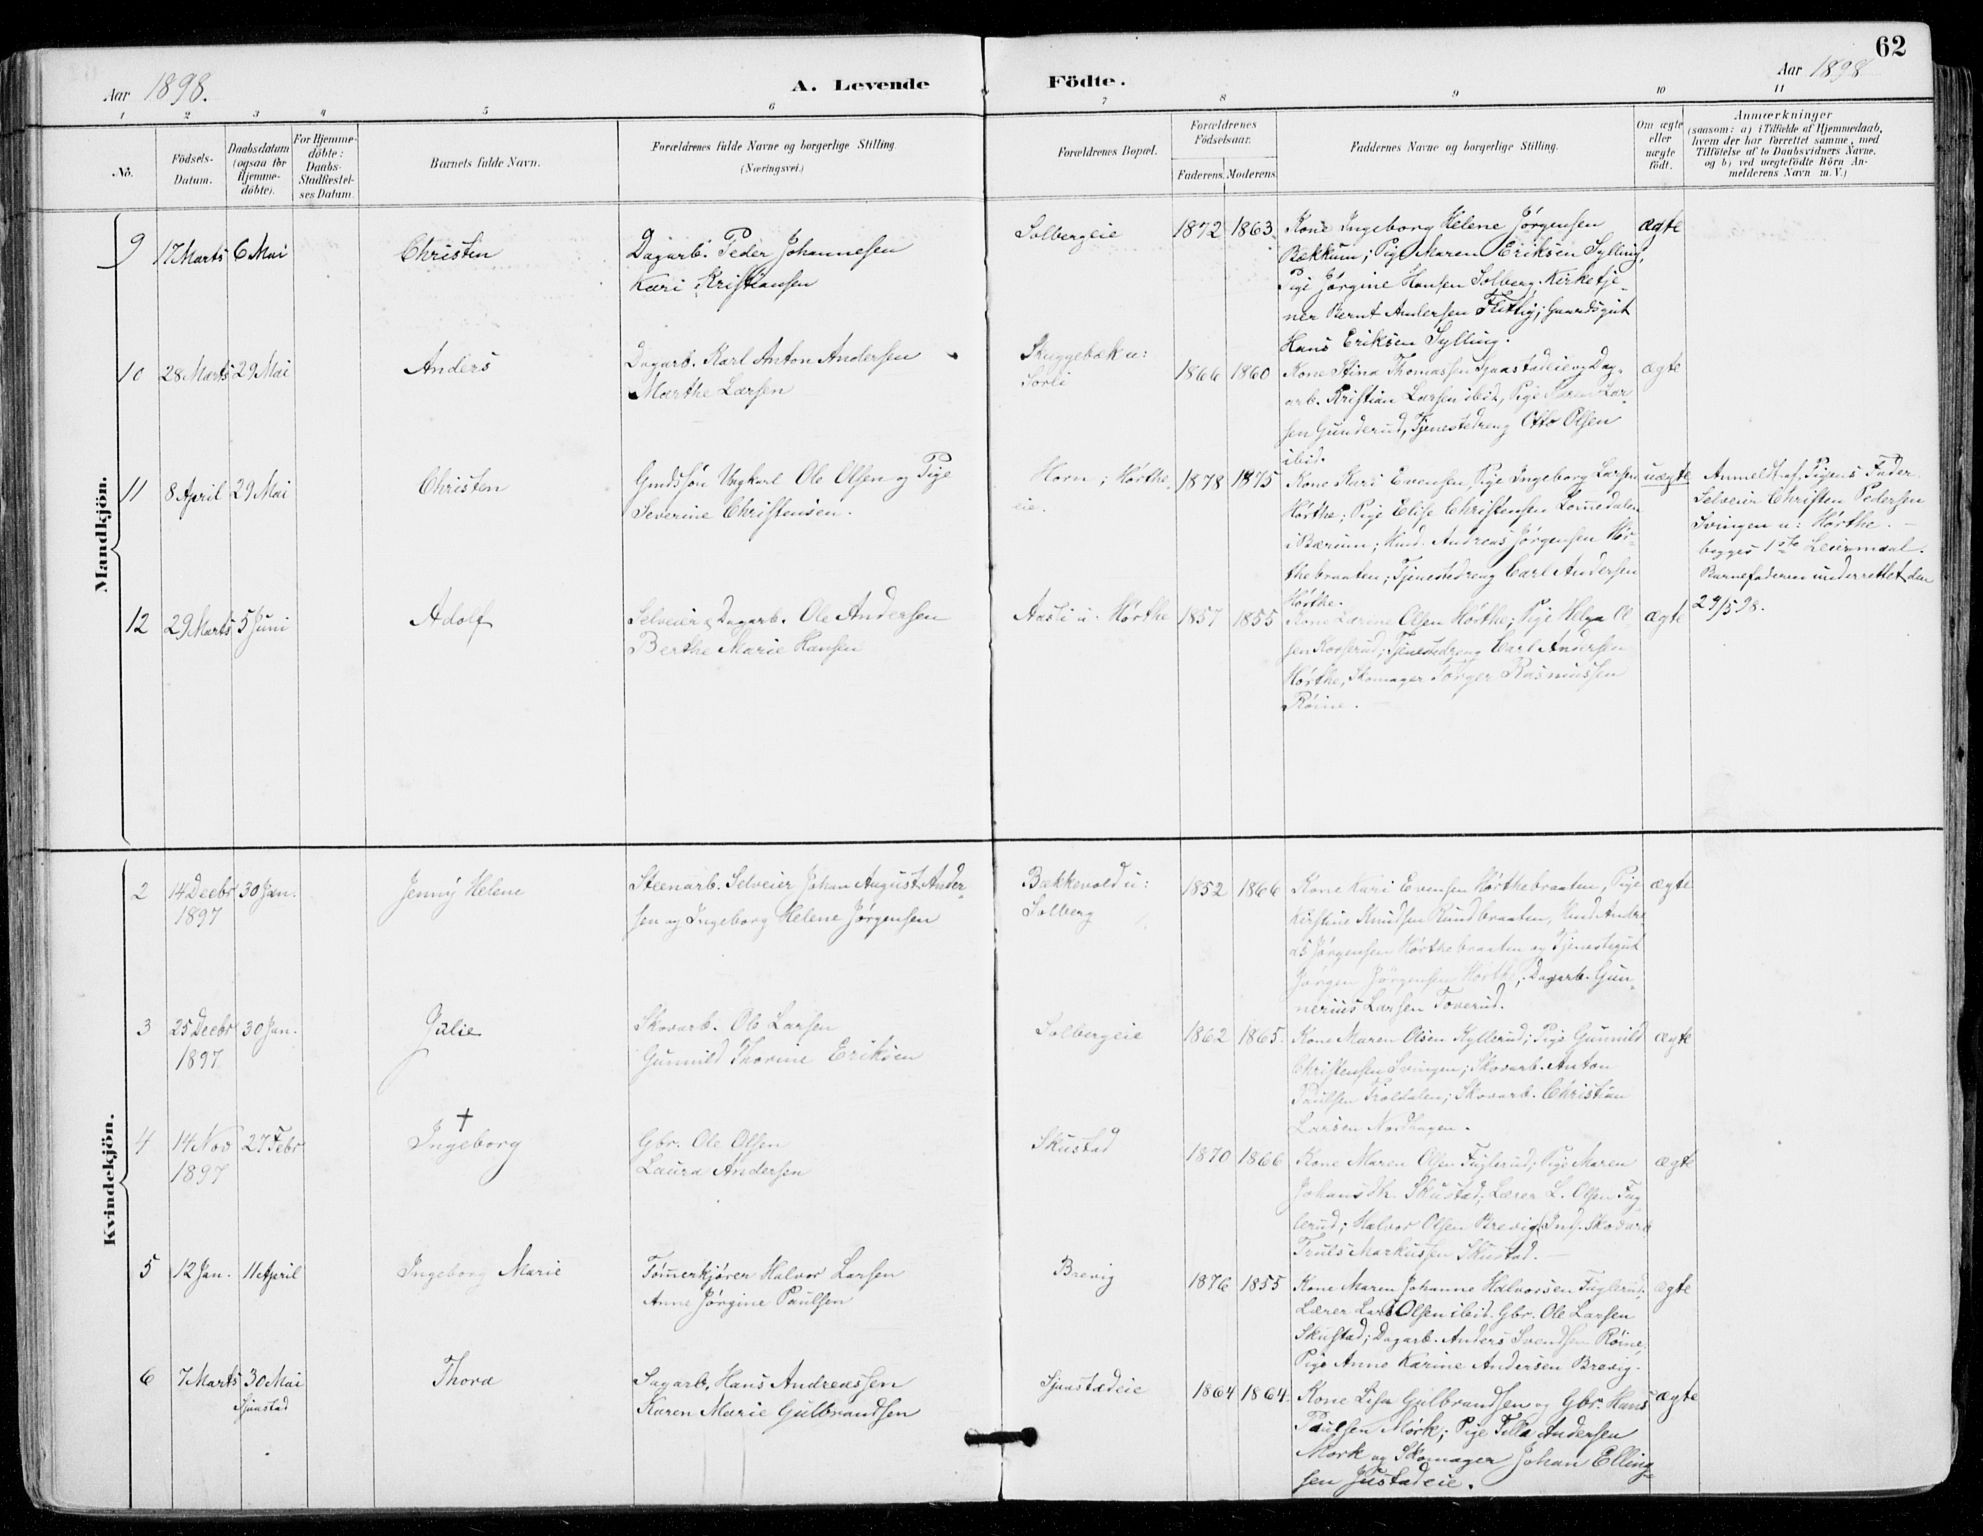 62
Aar 1898.
A. Levende Födte.
Aar 1898
1 2 3 4 5 6 7 8 9 10 11
No.
Födsels-
Datum.
Daabsdatum
(ogsaa for
Hjemme-
döbte).
For Hjemme-
döbte:
Daabs-
Stadfestel-
ses Datum.
Barnets fulde Navn.
Forældrenes fulde Navne og borgerlige Stilling
(Næringsvei.)
Forældrenes Bopæl.
Forældrenes
Födselsaar.
Faderens. Moderens.
Faddernes Navne og borgerlige Stilling.
Om ægte
eller
uægte
födt.
Anmærkninger
(saasom: a) i Tilfælde af Hjemmedaab,
hvem der har forrettet samme, med
Tilföielse af to Daabsvidners Navne.
og b) ved uægtefödte Börn An-
melderens Navn m. V.)
Mandkjön.
9 17 Marts 6 Mai Christin
Dagarb. Peder Johannesen
Kari Kristiansen
Solbergeie 1872 1863
Kone Ingeborg Helene Jørgensen
Bækkum; Pige Maren Eriksen Sylling,
Pige Jørgine Hansen Solberg. Kirketje-
ner Bernt Andersen Flittig; Gaardsgut
Hans Eriksen Sylling.
ægte
10 28 Marts 29 Mai Anders
Dagarb. Karl Anton Andersen
Marthe Larsen
Skuggebæk u:
Sørli
1866 1860
Kone Stina Thomassen Sjaastadeie og Dag-
arb. Kristian Larsen ibid, Pige Laren Lar-
sen Gunderud, Tjenestedreng Otto Olsen
ibid.
ægte
11 8 April 29 Mai Christen
Grndssøn Ungkarl Ole Olsen og Pige
Severine Christensen.
Horn; Hørthe-
eie.
1878 1875
Kone Kari Evensen, Pige Ingeborg Larsen
Hørthe; Pige Elise Christensen Lommedalen
i Bærum; Hmd. Andreas Jørgensen Hør-
thebraaten; Tjenestedreng Carl Andersen
Hørthe.
uægte
Anmeldt af Pigens Fader
Selveier Christen Pedersen
Svingen u: Hørthe. —
begges 1ste Leiermaal.
Barnefaderen underrettet den
29/5 98.
12 29 Marts 5 Juni Adolf
Selveier & Dagarb. Ole Andersen
Berthe Marie Hansen
Aasli u. Hørthe 1857 1855
Kone Karine Olsen Hørthe; Pige Helga Ol-
sen Korserud; Tjenestedreng Carl Andersen
Hørthe, Skomager Torger Rasmussen
Røine. —
ægte
Kvindekjön.
2 14 Decbr 30 Jan. Jenny Helene
1897
Steenarb. Selveier Johan August Ander-
sen og Ingeborg Helene Jørgensen
Bækkevold u:
Solberg
1852 1866
Kone Kari Evensen Hørthebraaten, Pige
Kirstine Knudsen Rundbraaten, Hmd Andre-
as Jørgensen Hørthebraaten og Tjenestegut
Jørgen Jørgensen Hørth; Dagarb. Gun-
nerius Larsen Toverud.
ægte
3 25 Decbr 30 Jan. Julie
1897
Skovarb. Ole Larsen
Gunnild Thorine Eriksen
Solbergeie 1862 1865.
Kone Maren Olsen Kyllerud; Pige Gunnild
Christensen Svingen; Skovarb. Anton
Paulsen Troldalen; Skovarb. Christian
Larsen Nordhagen.
ægte
4 14 Nov 27 Febr Ingeborg †
1897
Gbr. Ole Olsen
Laura Andersen
Skustad 1870 1866
Kone Maren Olsen Fuglerud; Pige Maren
Johansdtr. Skustad; Lærer L. Olsen Fug
lerud; Halvor Olsen Brevig; Ind. Skovarb
Truls Markussen Skustad. —
ægte
5 12 Jan. 11 April Ingeborg Marie
Tømmerkjører Halvor Larsen
Anne Jørgine Paulsen
Brevig 1876 1855
Kone Maren Johanne Halvorsen Fuglerud.
Lærer Lars Olsen ibid. Gbr. Ole Larsen
Skustad; Dagarb. Anders Svendsen Røine,
Pige Anne Karine Andersen Brevig.
ægte
6 7 Marts 30 Mai Thora
Sjaastad
Sagarb. Hans Andreassen
Karen Marie Gulbrandsen
Sjaastadeie 1864 1864.
Kone Lisa Gulbrandsen og Gbr. Hans
Paulsen Mørk; Pige Tilla Andersen
Mørk og Skomager Johan Elling-
sen Justadeie.
ægte